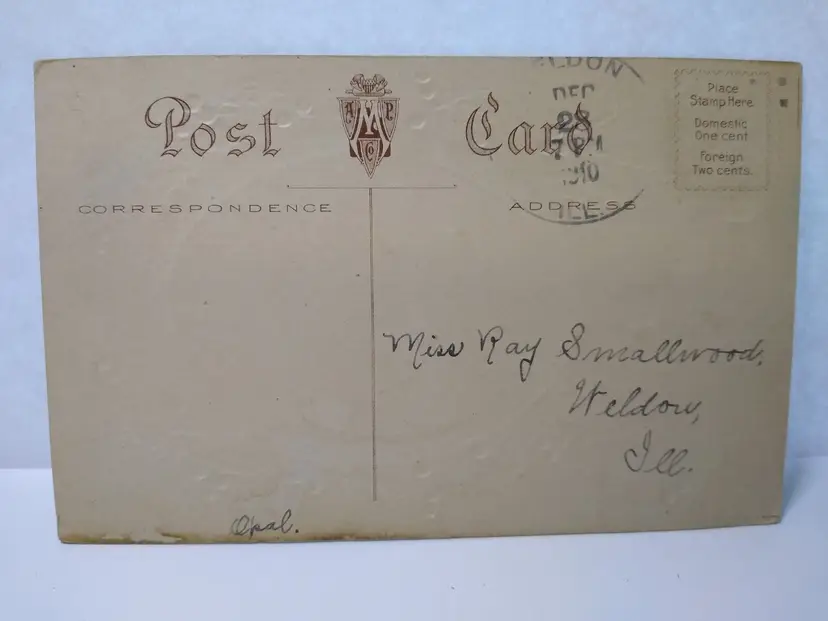 Post Card
A M P
Co
CORRESPONDENCE
ADDRESS
ELDON
DEC
28
7 PM
1910
ILL.
Place
Stamp Here
Domestic
One cent
Foreign
Two cents.
Miss Ray Smallwood,
Weldon,
Ill.
Opal.